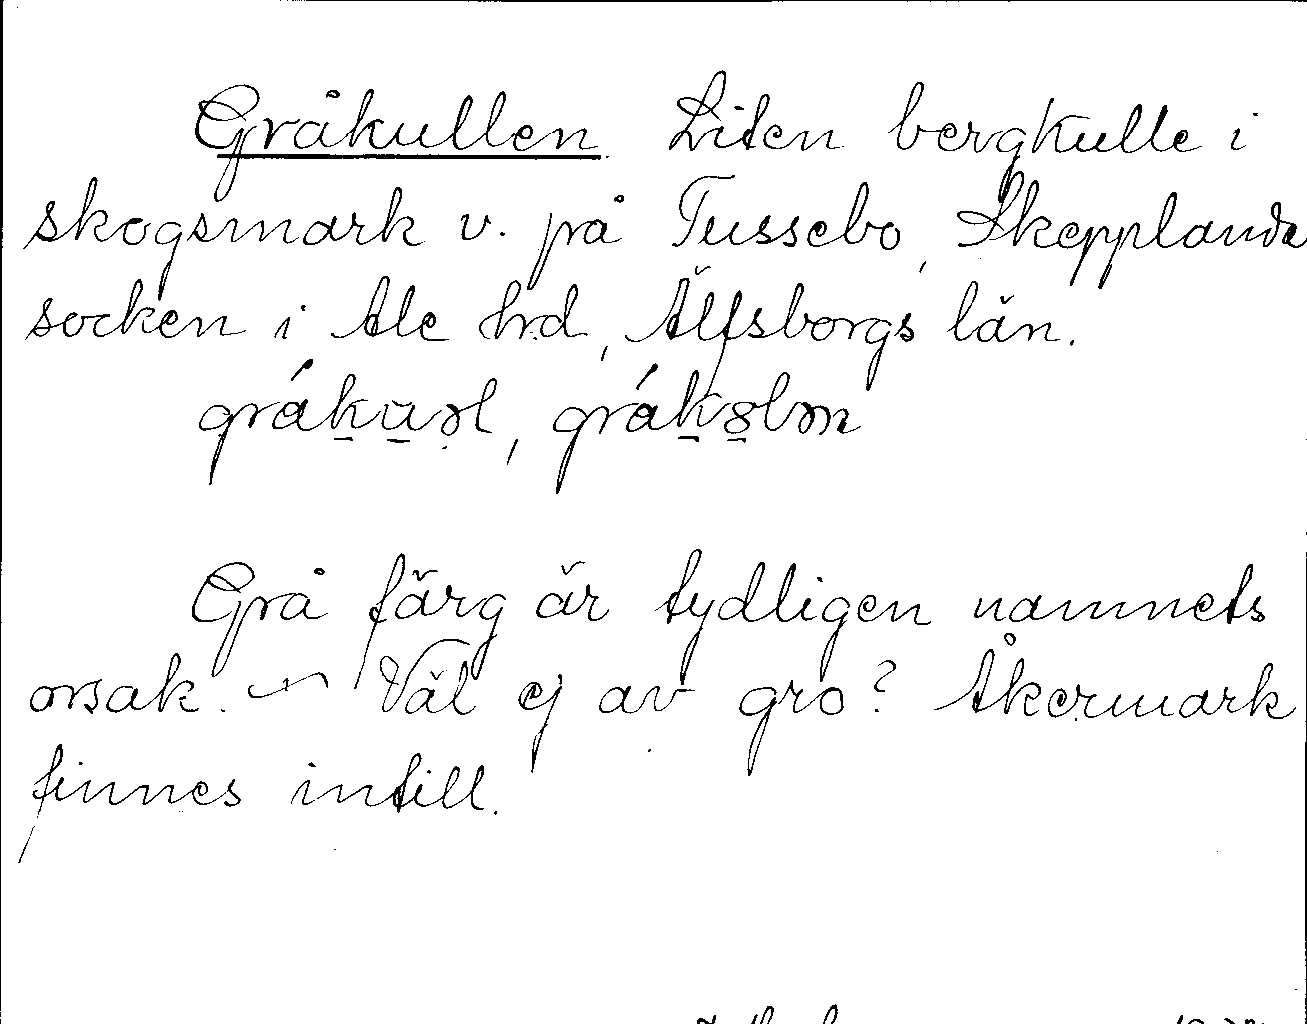 Gråkullen. Liten bergkulle i
skogsmark v. på Tussebo, Skepplanda
socken i Ale hrd, Älfsborgs län.
Grå färg är tydligen namnets
orsak. — Väl ej av gro? Åkermark
finnes intill.